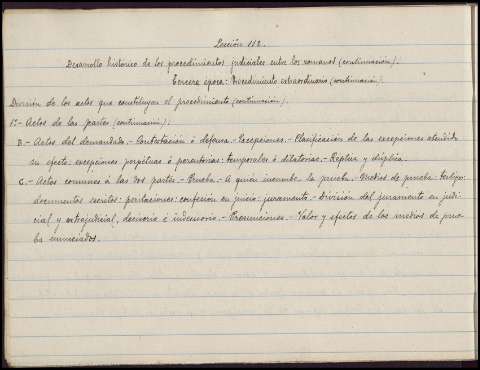 Lección 112.
Desarrollo histórico de los procedimientos judiciales entre los romanos (continuación).
Tercera época.- Procedimiento extraordinario (continuación).
División de los actos que constituyen el procedimiento (continuación).
1º.- Actos de las partes (continuación):
B.- Actos del demandado.- Contestación ó defensa.- Excepciones.- Clasificación de las excepciones atendido
su efecto: excepciones perpétuas ó perentorias: temporales ó dilatorias.- Réplica y dúplica.
C.- Actos comunes á las dos partes.- Prueba.- A quién incumbe la prueba.- Medios de prueba: testigos:
documentos escritos: peritaciones: confesión en juicio: juramento.- División del juramento en judi-
cial y extrajudicial, decisorio é indecisorio.- Presunciones.- Valor y efectos de los medios de prue-
ba enunciados.